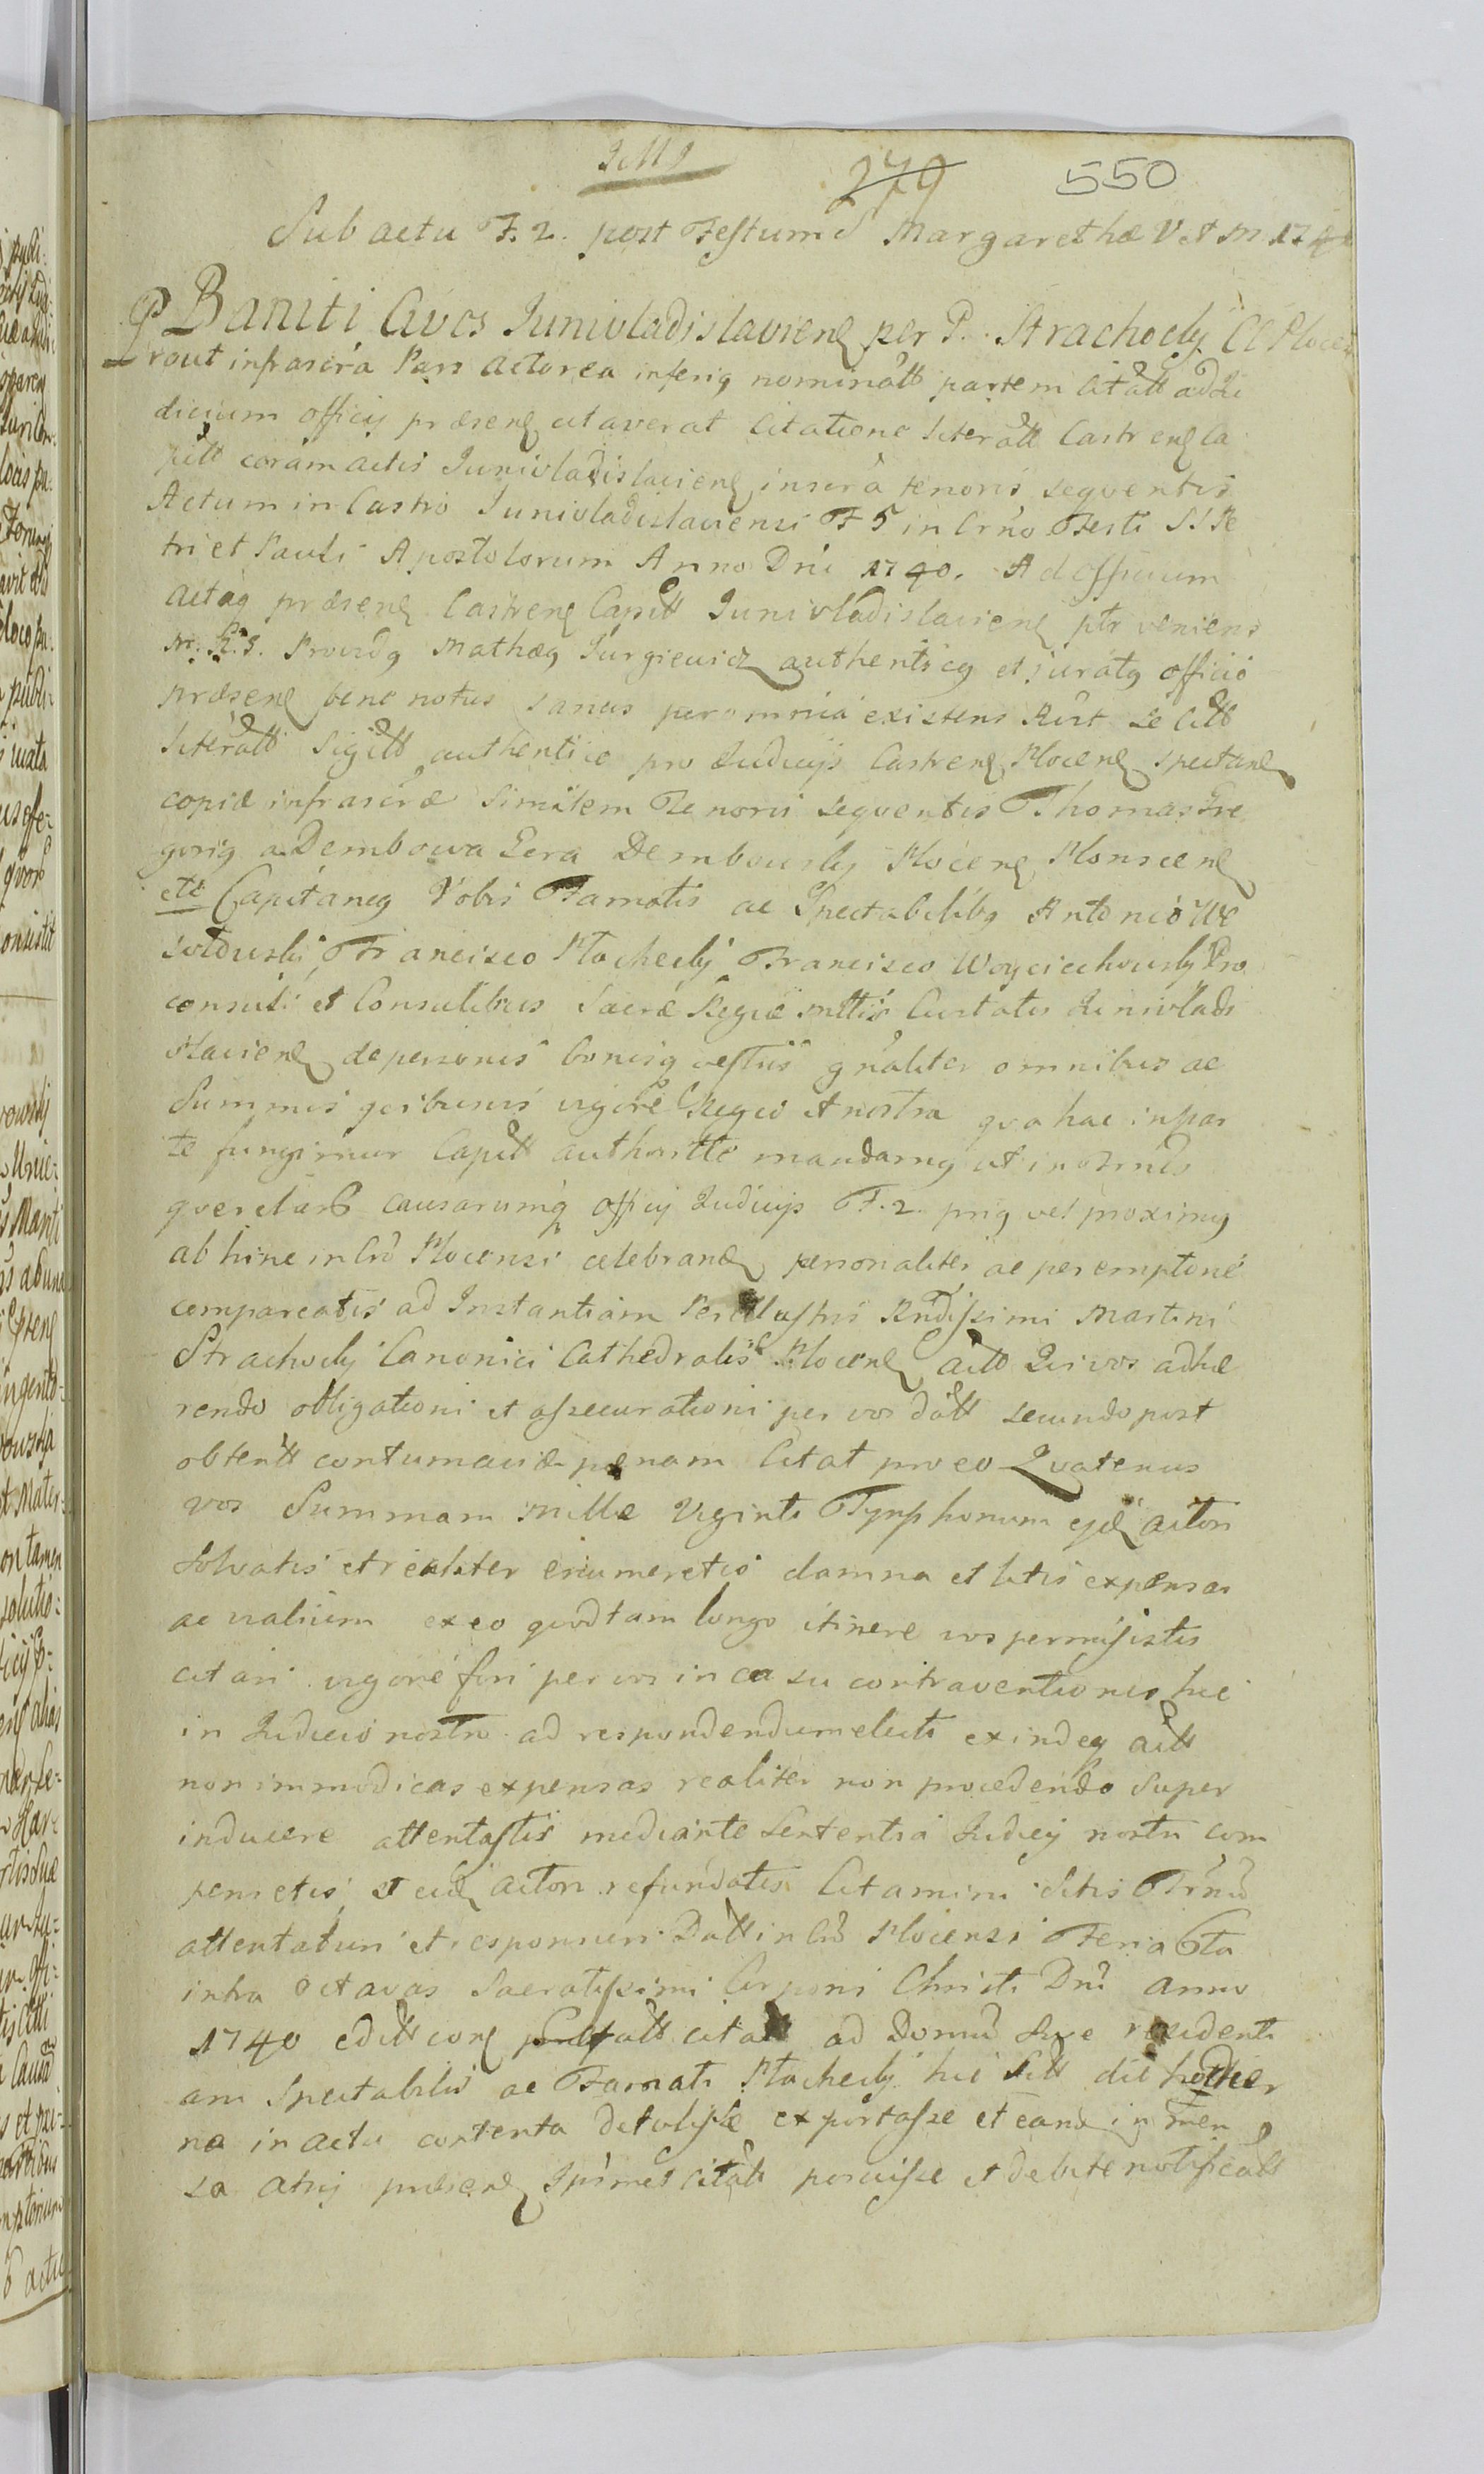 279 550
Sub actu F. 2. post Festum S Margarethæ V et M 174
Baniti Cives Junivladislavienẽ per P. Strachocky C Plocen
Prout infrascra Pars Actorea inferiq nominatt partem Citatt ad Ju
dicium officij præsenẽ citaverat Citatione literatt Castrenẽ Ca
pitt coram actis Junivladislavienẽ inscra tenoris seqventis
Actum in Castro Junivladislaviensi F 5 in Crño Festi SS Pe
tri et Pauli Apostolorum Anno Dni 1740. Ad officium
Actaq præsenẽ Castrenẽ Capitt Junivladislavienẽ ptr veniens
M. R. S. Providq Mathæq Jurgiewicz authenticq et juratq officio
præsenẽ bene notus sanus per omnia existens Rcit se citt
literatt sigitt authentice pro Judicijs Castrenẽ Plocenẽ spectanẽ
copiæ infrascræ similem Tenoris seqventis Thomas Gre
goriq a Dembowa Gera Dembowsky Plocenẽ Plonscenẽ
etc Capitaneq Vobis Famatis ac Spectabilibq Antonio We
solowski, Francisco Stachecky Francisco Woyciechowsky Pro
consuli et Consulibus Sacræ Regiæ Mttis Civitatis Junivladi
slavienẽ de personis bonisq vestris gñaliter omnibus ac
Summis qcibusvis vigore Regia et nostra qva hac in par
te fungimur Capitt authoritte mandamq ut in Trnis
qverelarũ causarumq officij Judicijs F. 2. priq vel proximq
ab hinc in Crõ Plocensi celebranẽ personaliter ac peremptorie
compareatis ad Instantiam Perillustris Rndissimi Martini
Strachocky Canonici Cathedralis Plocenẽ actt Qui vos adhæ
rendo obligationi et assecurationi per vos datt secundo post
obtentt contumaciæ pænam Citat pro eo Qvatenus
vos Summam mille viginti Tynphonum ejdẽ actori
solvatis et realiter enumeretis damna et litis expensas
ac vialium ex eo qvod tam longo itinere vos permisistis
citari vigore fori per vos in casu contraventionis hic
in Judicio nostro ad respondendum electi exindeq actt
non immodicas expensas realiter non procedendo super
inducere attentastis mediante Sententia Judicij nostri com
pensetis, et eidẽ actori refundatis Citamini Sitis Trnũ
attentaturi et responsuri Datt in Crõ Plocensi Feria 6ta
intra Octavas Sacratissimi Corporis Christi Dni anno
1740 editt corẽ citatt ad Domũ sive residenti
am Spectabilis ac Famati Stachecky hic Sitt die hodier
na in actu contenta detulisse exportasse et eand in men
sa atrij præsenẽ ipsimet citato posuisse et debite notificatt